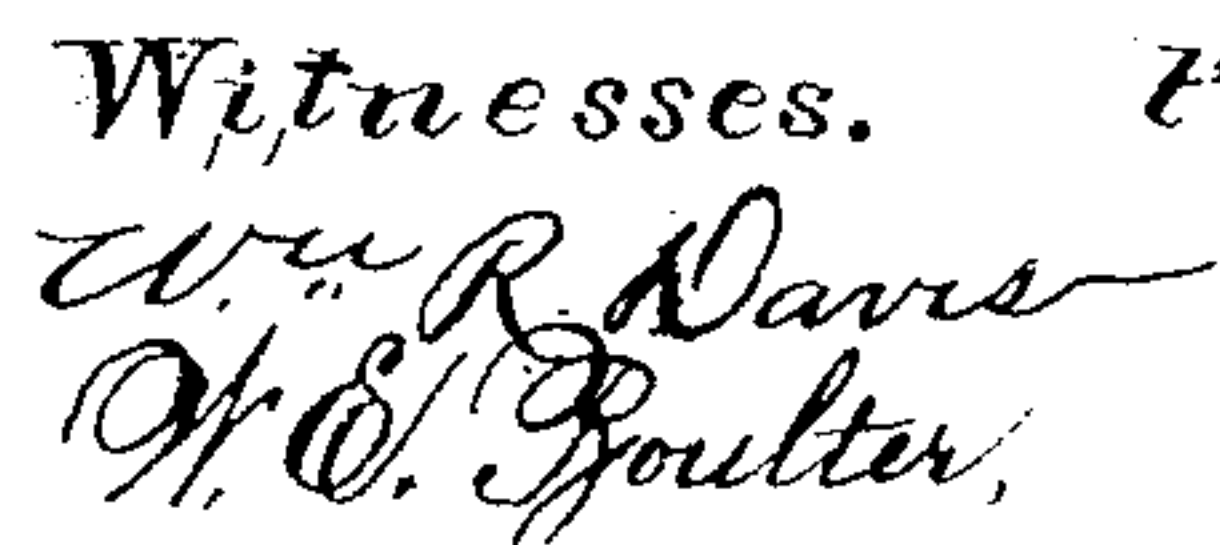 Witnesses.
Wm R. Davis
W. E. Boulter,